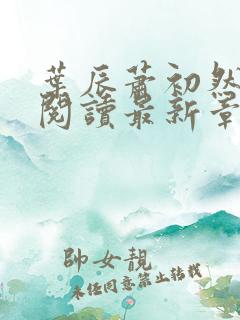 葉辰蕭初然
閱讀最新章
帥女靚
未经同意禁止转载